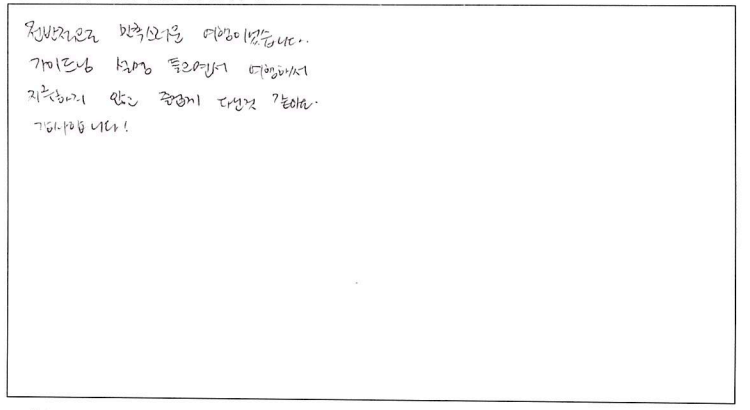 전반적으로 만족스러운 여행이었습니다..
가이드님 설명 들으면서 여행해서
지루하지 않고 즐겁게 다닌것 같아요.
감사합니다!